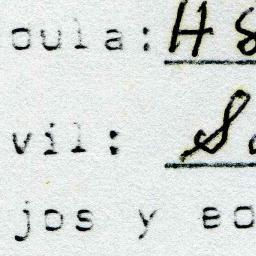 dula: H8
vil: S
jos y ed